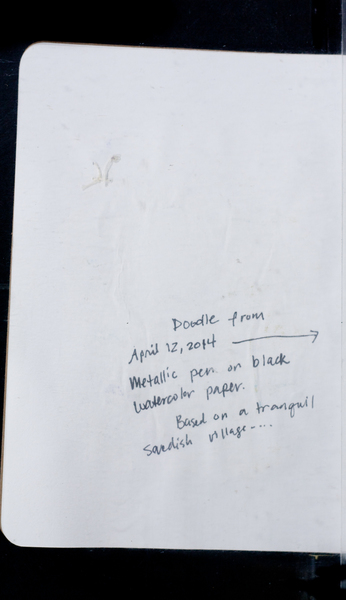 Doodle from
April 12, 2014 →
Metallic pen on black
watercolor paper.
Based on a tranquil
Swedish village-...